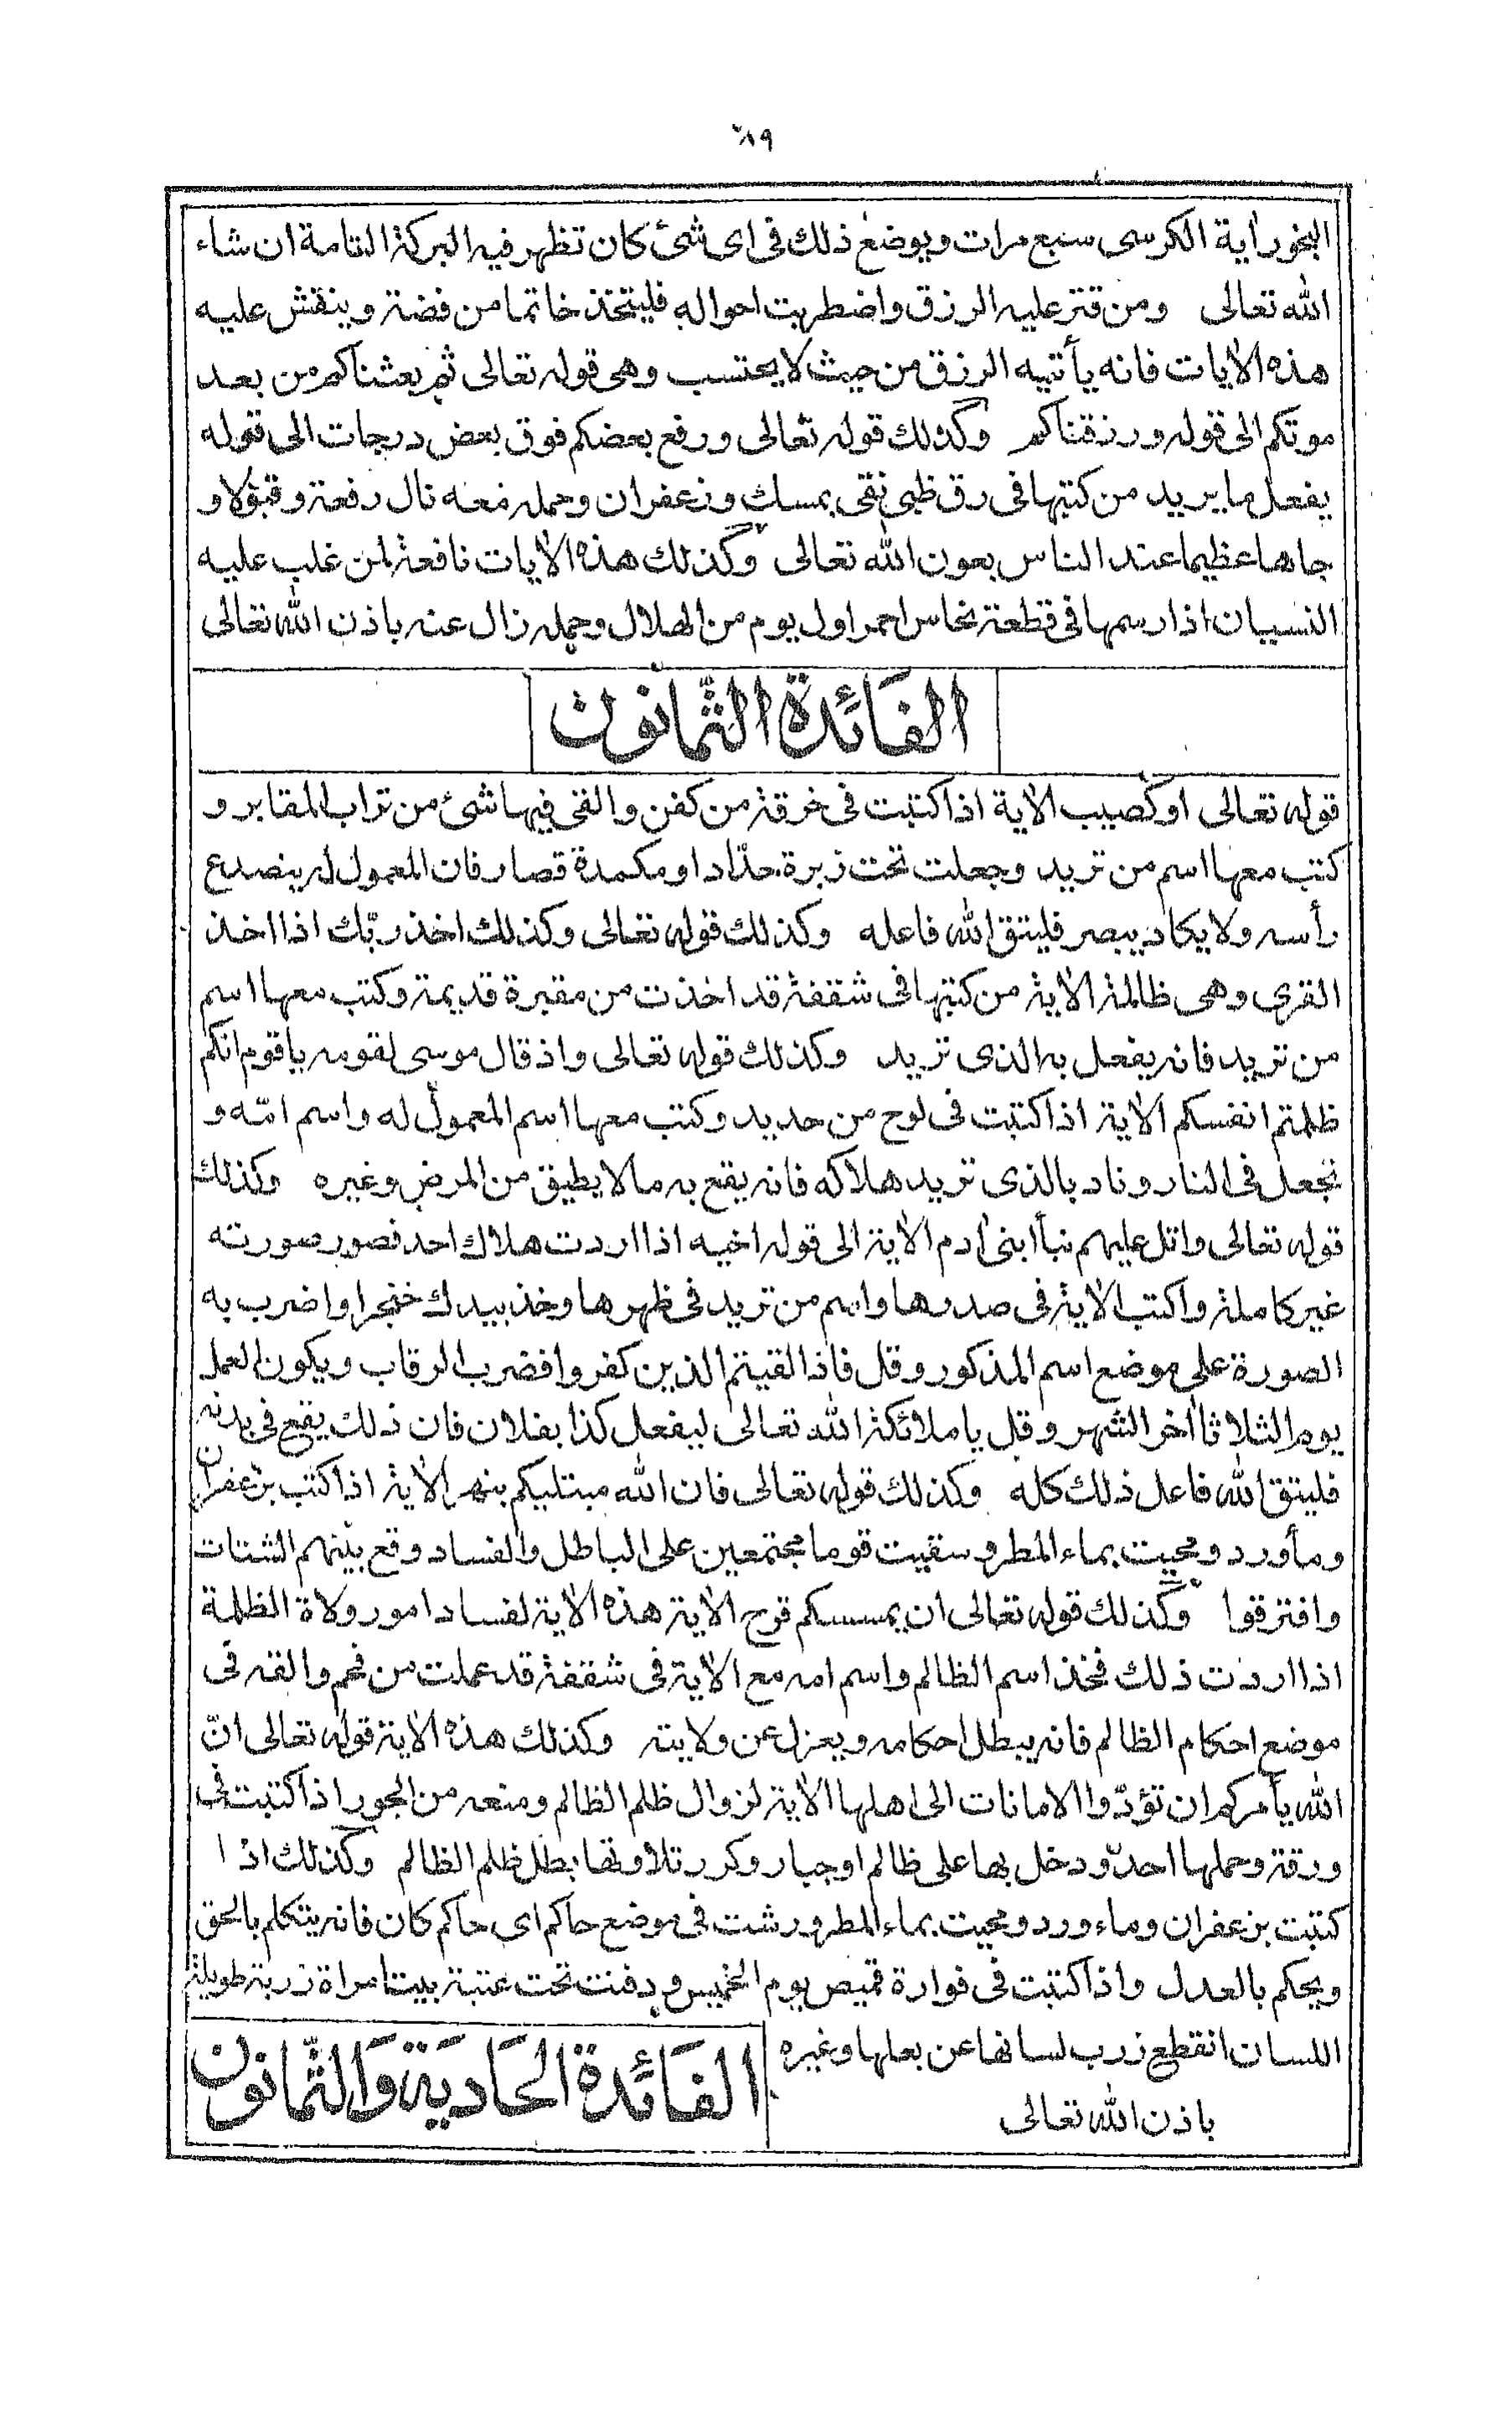 ٨٩
البخور أية الكرسى سبع مرات ويوضع ذلك فى اى شئ كان تظهر فيه البركة التامة ان شاء
الله تعالى ومن قتر عليه الرزق واضطربت احواله فليتخذ خاتما من فضة وينقش عليه
هذه الأيات فانه يأتيه الرزق من حيث لا يحتسب وهى قوله تعالى ثم بعثناكم من بعد
موتكم الى قوله ورزقناكم وكذلك قوله تعالى ورفع بعضكم فوق بعض درجات الى قوله
يفعل ما يريد من كتبها فى رق ظبى نقى بمسك وزعفران وحمله معه نال رفعة وقبولا و
جاها عظيما عند الناس بعون الله تعالى وكذلك هذه الأيات نافعة لمن غلب عليه
النسيان اذا رسمها فى قطعة نحاس احمر اول يوم من الهلال وحمله زال عنه باذن الله تعالى
الفَائدة الثّمانون
قوله تعالى او كصيب الأية اذا كتبت فى خرقة من كفن والقى فيها شئ من تراب المقابر و
كتب معها اسم من تريد وجعلت تحت زبرة حدّاد او مكمدة قصار فان المعمول له ينصدع
رأسه ولا يكاد يبصر فليتق الله فاعله وكذلك قوله تعالى وكذلك اخذ ربّك اذا اخذ
القرى وهى ظالمة الأية من كتبها فى شقفة قد اخذت من مقبرة قديمة وكتب معها اسم
من تريد فانه يفعل به الذى تريد وكذلك قوله تعالى واذ قال موسى لقومه ياقوم انكم
ظلمتم انفسكم الأية اذا كتبت فى لوح من حديد وكتب معها اسم المعمول له واسم امّه و
تجعل فى النار وناد بالذى تريد هلاكه فانه يقع به ما لا يطيق من المرض وغيره وكذلك
قوله تعالى واتل عليهم نبأ ابنى أدم الأية الى قوله اخيه اذا اردت هلاك احد فصور صورته
غير كاملة واكتب الأية فى صدرها واسم من تريد فى ظهرها وخذ بيدك خنجرا واضرب به
الصورة على موضع اسم المذكور وقل فاذا لقيتم الذين كفروا فضرب الرقاب ويكون العمل
يوم الثلاثا أخر الشهر وقل يا ملائكة الله تعالى ليفعل كذا بفلان فان ذلك يقع فى بدنه
فليتق الله فاعل ذلك كله وكذلك قوله تعالى فان الله مبتليكم بنهر الأية اذا كتب بزعفران
ومأورد ومحيت بماء المطر وسقيت قوما مجتمعين على الباطل والفساد وقع بينهم الشتات
وافترقوا وكذلك قوله تعالى ان يمسسكم قرح الأية هذه الأية لفساد امور ولاة الظلمة
اذا اردت ذلك فخذ اسم الظالم واسم امه مع الأية فى شقفة قد عملت من فحم والقه فى
موضع احكام الظالم فانه يبطل احكامه ويعزل عن ولايته وكذلك هذه الأية قوله تعالى انّ
الله يأمركم ان تؤدّوا الامانات الى اهلها الأية لزوال ظلم الظالم ومنعه من الجور اذا كتبت فى
ورقة وحملها احدّ ودخل بها على ظالم او جبار وكرر تلاوتها بطل ظلم الظالم وكذلك اذا
كتبت بزعفران وماء ورد ومحيت بماء المطر ورشت فى موضع حاكم اى حاكم كان فانه يتكلم بالحق
ويحكم بالعدل واذا كتبت فى قوارة قميص يوم الخميس ودفنت تحت عتبة بيت امراة زربة طويلة
اللسان انقطع زرب لسانها عن بعلها وغيره
باذن الله تعالى
الفَائدة الحَاديَة وَالثّمانون